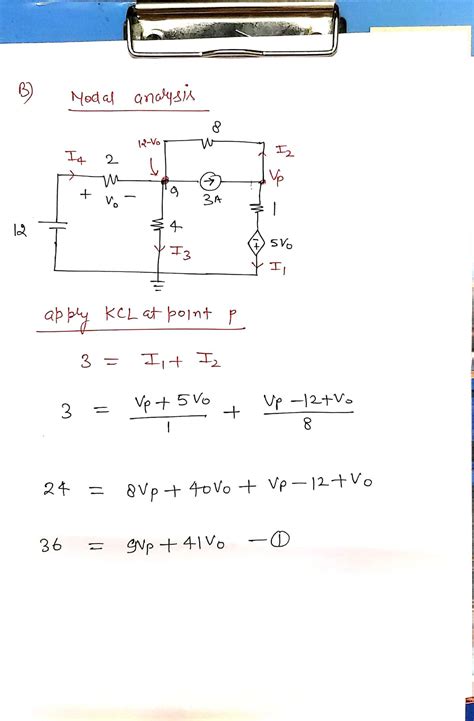 B) Nodal analysis
8
12-Vo
I2
I4 2
Vp
+ Vo - 9 3A
1
12
4
- + 5Vo
I3
I1
apply KCL at point p
3 = I1 + I2
3 = Vp + 5Vo / 1 + Vp - 12 + Vo / 8
24 = 8Vp + 40Vo + Vp - 12 + Vo
36 = 9Vp + 41Vo - ①